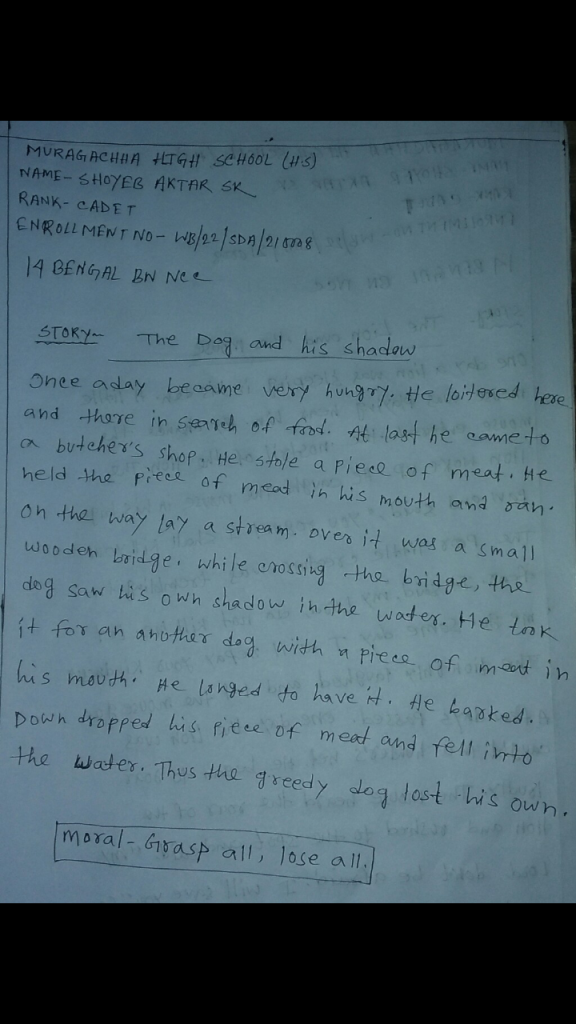 MURAGACHHA HIGH SCHOOL (HS)
NAME- SHOYEB AKTAR SK
RANK- CADET
ENROLLMENT NO- WB/22/SDA/218008
14 BENGAL BN NCC
STORY- The Dog and his shadow
Once aday became very hungry. He loitered here
and there in search of food. At last he came to
a butcher's shop. He stole a piece of meat. He
held the piece of meat in his mouth and ran.
On the way lay a stream. over it was a small
wooden bridge. while crossing the bridge, the
dog saw his own shadow in the water. He took
it for an another dog with a piece of meat in
his mouth. He longed to have it. He barked.
Down dropped his piece of meat and fell into
the water. Thus the greedy dog lost his own.
Moral- Grasp all, lose all.